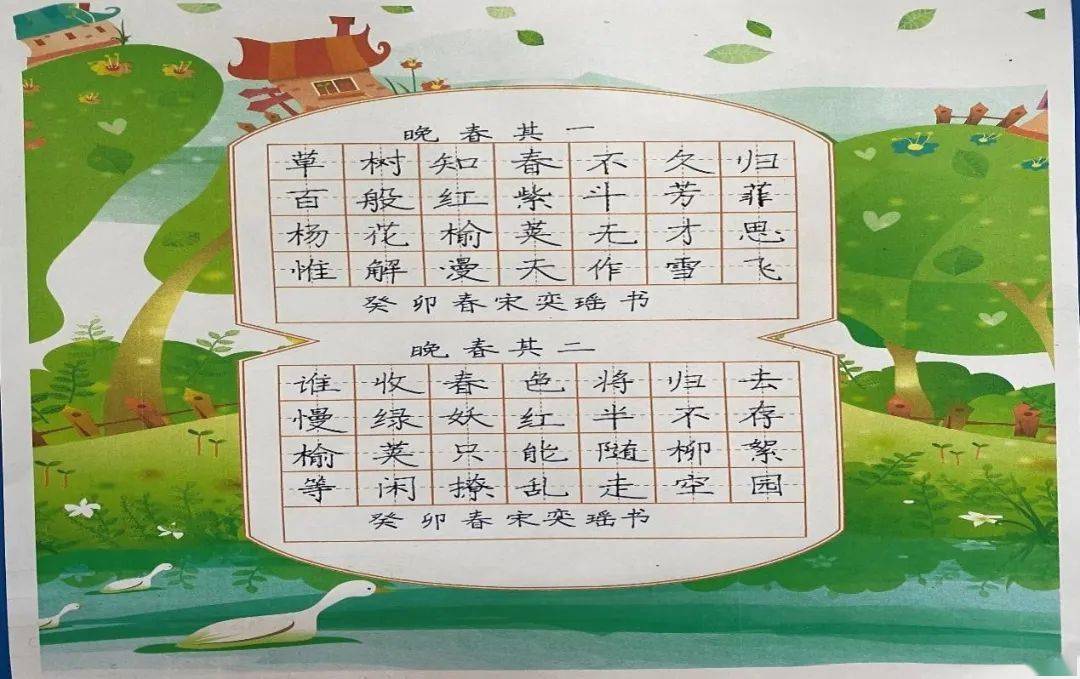 晚春其一
草树知春不久归
百般红紫斗芳菲
杨花榆荚无才思
惟解漫天作雪飞
癸卯春宋奕瑶书
晚春其二
谁收春色将归去
慢绿妖红半不存
榆荚只能随柳絮
等闲撩乱走空园
癸卯春宋奕瑶书